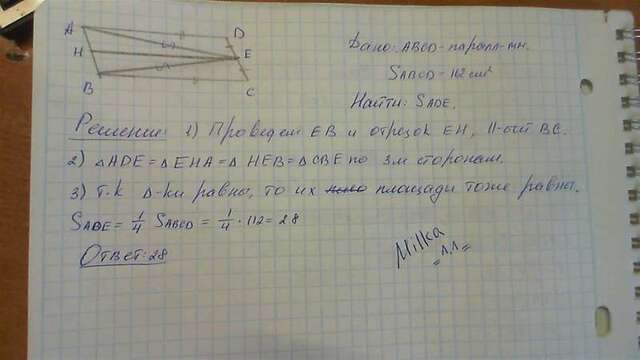 A D
H E
B C
Дано: ABCD - паралл-мм.
SABCD = 112 см²
Найти: SADE.
Решение: 1) Проведем EB и отрезок EH, ||-ый BC.
2) △ADE = △EHA = △HEB = △CBE по 3м сторонам.
3) т.к △-ки равны, то их площади тоже равны.
SADE = 1/4 SABCD = 1/4 · 112 = 28
Ответ: 28
Milka
"1,1"